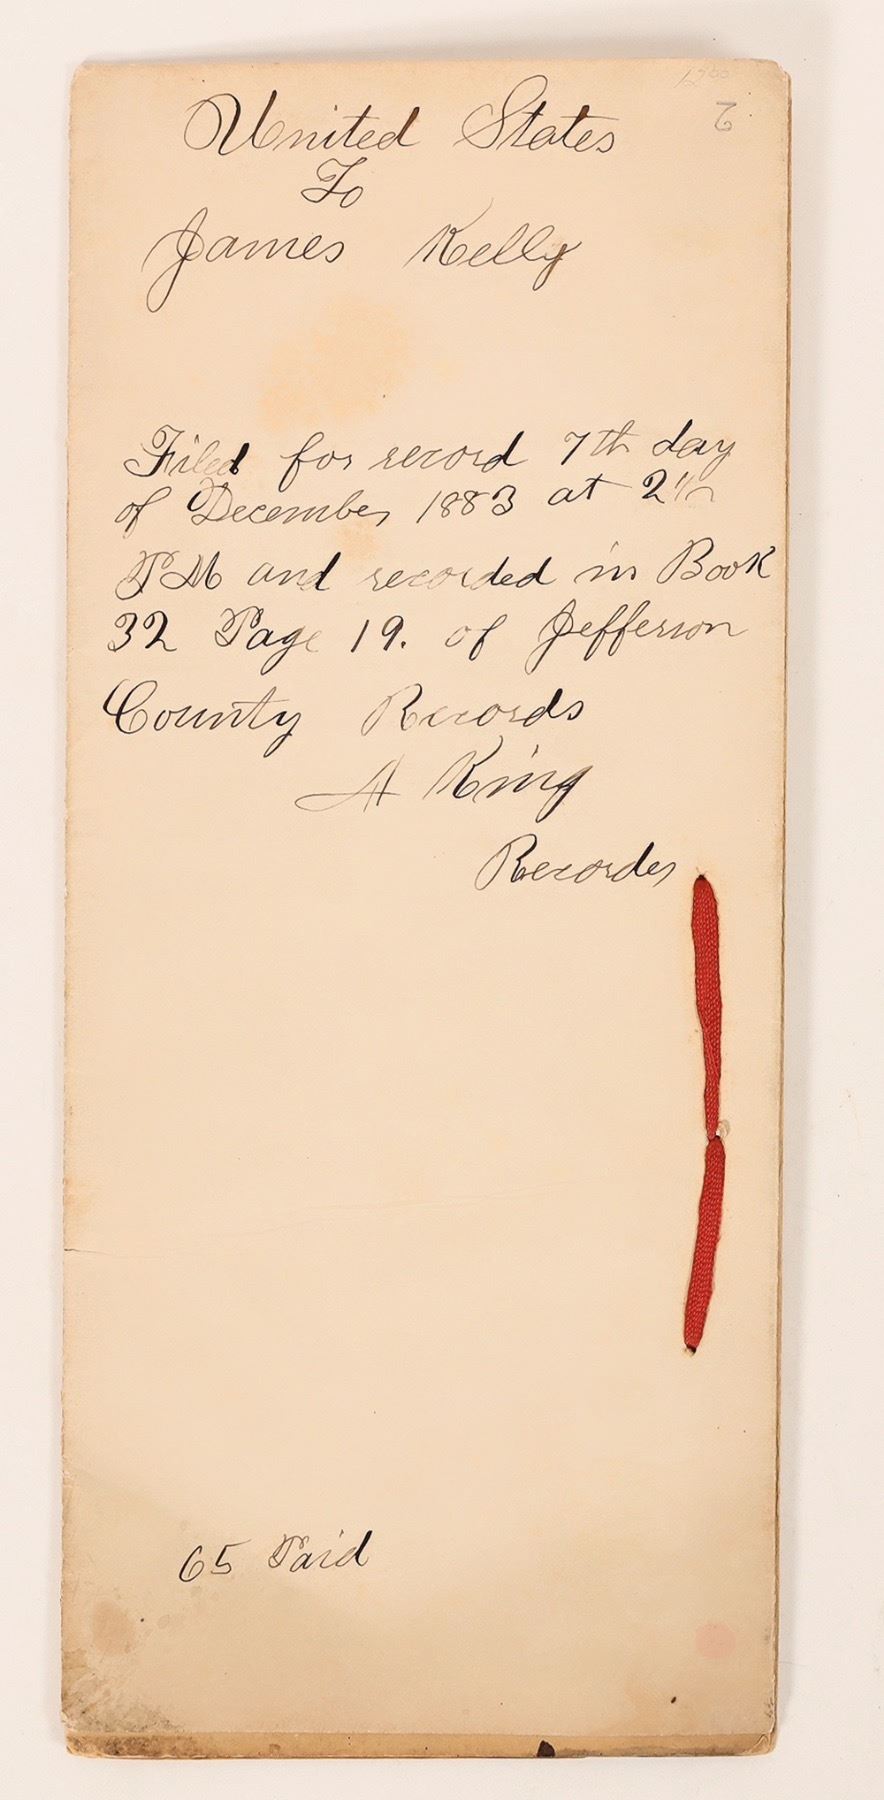 United States
To
James Kelly
Filed for record 7th day
of December 1883 at 2
PM and recorded in Book
32 Page 19. of Jefferson
County Records
A King
Recorder
65 Paid